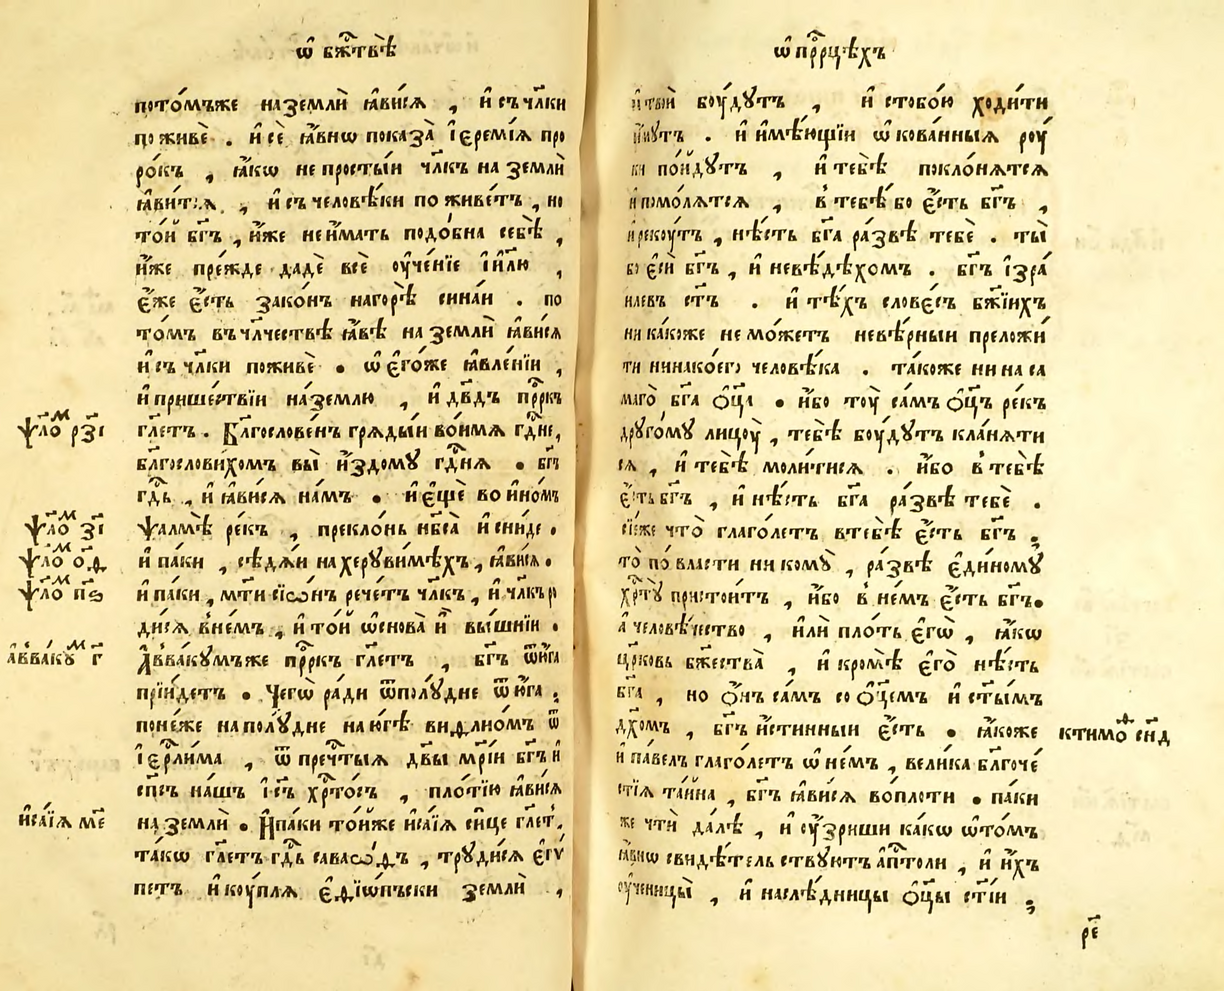 ѡ҆ бж҃твѣ̀
пото́мъже наземлѝ ꙗ҆ви́сѧ , и҆ съ чл҃ки
поживѐ . и҆ сѐ ꙗ҆́внѡ показа̀ і҆еремі́ѧ про
ро́къ , ꙗ҆́кѡ не простыи чл҃къ на землѝ
ꙗ҆ви́тсѧ , и҆ съ человѣ́ки по живе́тъ , но
то́й бг҃ъ , и҆́же неи҆́мать подо́бна себѣ̀ ,
и҆́же пре́жде дадѐ всѐ оу҆че́нїе і҆и҃лю ,
є҆́же є҆́сть зако́нъ нагорѣ̀ сина́и . по
то́мъ въ чл҃чествѣ ꙗ҆́вѣ на землѝ ꙗ҆ви́сѧ
и҆ съ чл҃ки поживѐ . ѡ҆ є҆го́же ꙗ҆вле́нїи ,
и҆ прише́ствїи на́землю , и҆ дв҃дъ прⷪ҇ркъ
гл҃етъ . Благослове́нъ грѧды́и во́имѧ гдⷭ҇не ,
благослови́хомъ вы̀ и҆здому гдⷭ҇нѧ . бг҃ъ
гдⷭ҇ь , и҆ ꙗ҆ви́сѧ на́мъ . и҆ є҆щѐ во и҆но́мъ
ѱалмѣ̀ ре́къ , преклонь нб҃са̀ и҆ сни́де .
и҆ па́ки , сѣдѧ́и на херуви́мѣхъ , ꙗ҆ви́сѧ .
и҆ па́ки , мт҃и сїѡ́нъ рече́тъ чл҃къ , и҆ чл҃къ р
ди́сѧ в не́мъ , и҆ то́й ѡ҆снова̀ и҆̀ вы́шнїи .
А҆вваку́мъже прⷪ҇ркъ гл҃етъ , бг҃ъ ѿ ю҆́га
прїи́детъ . Чегѡ̀ ра́ди ѿ полу́дне ѿ ю҆́га ;
поне́же наполу́дне на ю҆́гѣ виѳлио́мъ ѿ
і҆ерⷭ҇ли́ма , ѿ преч҃тыѧ дв҃ы мр҃і́и бг҃ъ и҆
сп҃съ на́шъ і҆с҃ъ хрⷭ҇то́съ , пло́тїю ꙗ҆ви́сѧ
на землѝ . И҆ па́ки то́йже и҆са́їѧ си́це гл҃етъ .
та́кѡ гл҃етъ гдⷭ҇ь саваѡ́ѳъ , труди́сѧ є҆гѵ́
петъ и҆ ку́плѧ є҆ѳїѡ́пьски землѝ ,
ѱало́мⷨ рз҃і
ѱало́мⷨ з҃і
ѱало́мⷨ о҃ѳ
ѱало́мⷨ п҃ѕ
а҆вваку́мⷨ г҃
и҆са́їѧ м҃е
ѡ҆ прⷪ҇рцѣхъ
и҆ твоѝ бу́дутъ , и҆ стобо́ю ходи́ти
и҆́мутъ . и҆ имѣ́ющїи ѡ҆кованныѧ роу́
ки по́йдутъ , и҆ тебѣ̀ покло́нѧтсѧ
и҆ помо́лѧтсѧ , в тебѣ̀ бо є҆́сть бг҃ъ ,
и҆ реку́тъ , нѣ́сть бг҃а ра́звѣ тебѐ . ты̀
бо є҆сѝ бг҃ъ , и҆ невѣ́дѣхомъ . бг҃ъ і҆зра́
илевъ ст҃ъ . и҆ тѣ́хъ слове́съ бж҃їихъ
ни ка́коже не мо́жетъ невѣ́рныи преложи́
ти нинако́его человѣ́ка . та́коже ни на са
маго̀ бг҃а ѻ҆ц҃а . и҆́бо тоу̀ са́мъ ѻ҆ц҃ъ ре́къ
друго́му лицоу̀ , тебѣ̀ бу́дутъ кла́нѧти
сѧ , и҆ тебѣ̀ моли́тисѧ . и҆́бо в тебѣ̀
є҆́сть бг҃ъ , и҆ нѣ́сть бг҃а ра́звѣ тебѐ .
сїе́же что̀ глаго́летъ втебѣ̀ є҆́сть бг҃ъ ;
то̀ по́власти ни кому̀ , ра́звѣ є҆ди́ному
хрⷭ҇ту̀ присто́итъ , и҆́бо в не́мъ є҆́сть бг҃ъ .
а человѣ́чество , и҆лѝ пло́ть є҆гѡ̀ , ꙗ҆́кѡ
цр҃ковь бж҃ества̀ , и҆ кромѣ̀ є҆го̀ нѣ́сть
бг҃а , но ѻ҆́нъ са́мъ со ѻ҆ц҃е́мъ и҆ ст҃ы́мъ
дх҃омъ , бг҃ъ и҆́стинныи є҆́сть . ꙗ҆́коже
и҆ па́велъ глаго́летъ ѡ҆ не́мъ , вели́ка блг҃оче́
стїѧ та́йна , бг҃ъ ꙗ҆ви́сѧ воплоти . па́ки
же чтѝ да́лѣ , и҆ оу҆́зриши ка́кѡ ѡ҆ то́мъ
ꙗ҆́внѡ свидѣ́тельствуютъ а҆пⷭ҇толи , и҆ и҆́хъ
оу҆ченицы̀ , и҆ наслѣ́дницы ѻ҆ц҃ы ст҃і́и ;
ктимоⷴ҇ сн҃д
р҃е